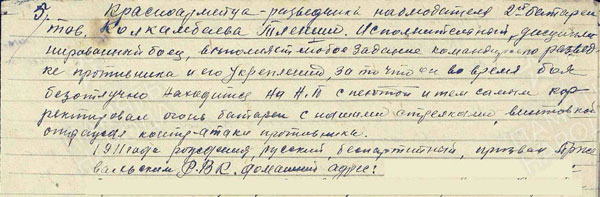 5/ Красноармейца-разведчика наблюдателя 2ой батареи
тов. Колкамбаева Тлекши. Исполнительный, дисципли
нированный боец, выполняет любое задание командира по развед
ке противника и его укреплений, за то что он во время боя
безотлучно находится на Н.П с пехотой и тем самым кор
ректировал огонь батареи с нашими стрелками, винтовкой
отпуская контр-атаки противника.
1911 года рождения, русский, беспартийный, призван Прже
вальским Р.В.К. домашний адрес: